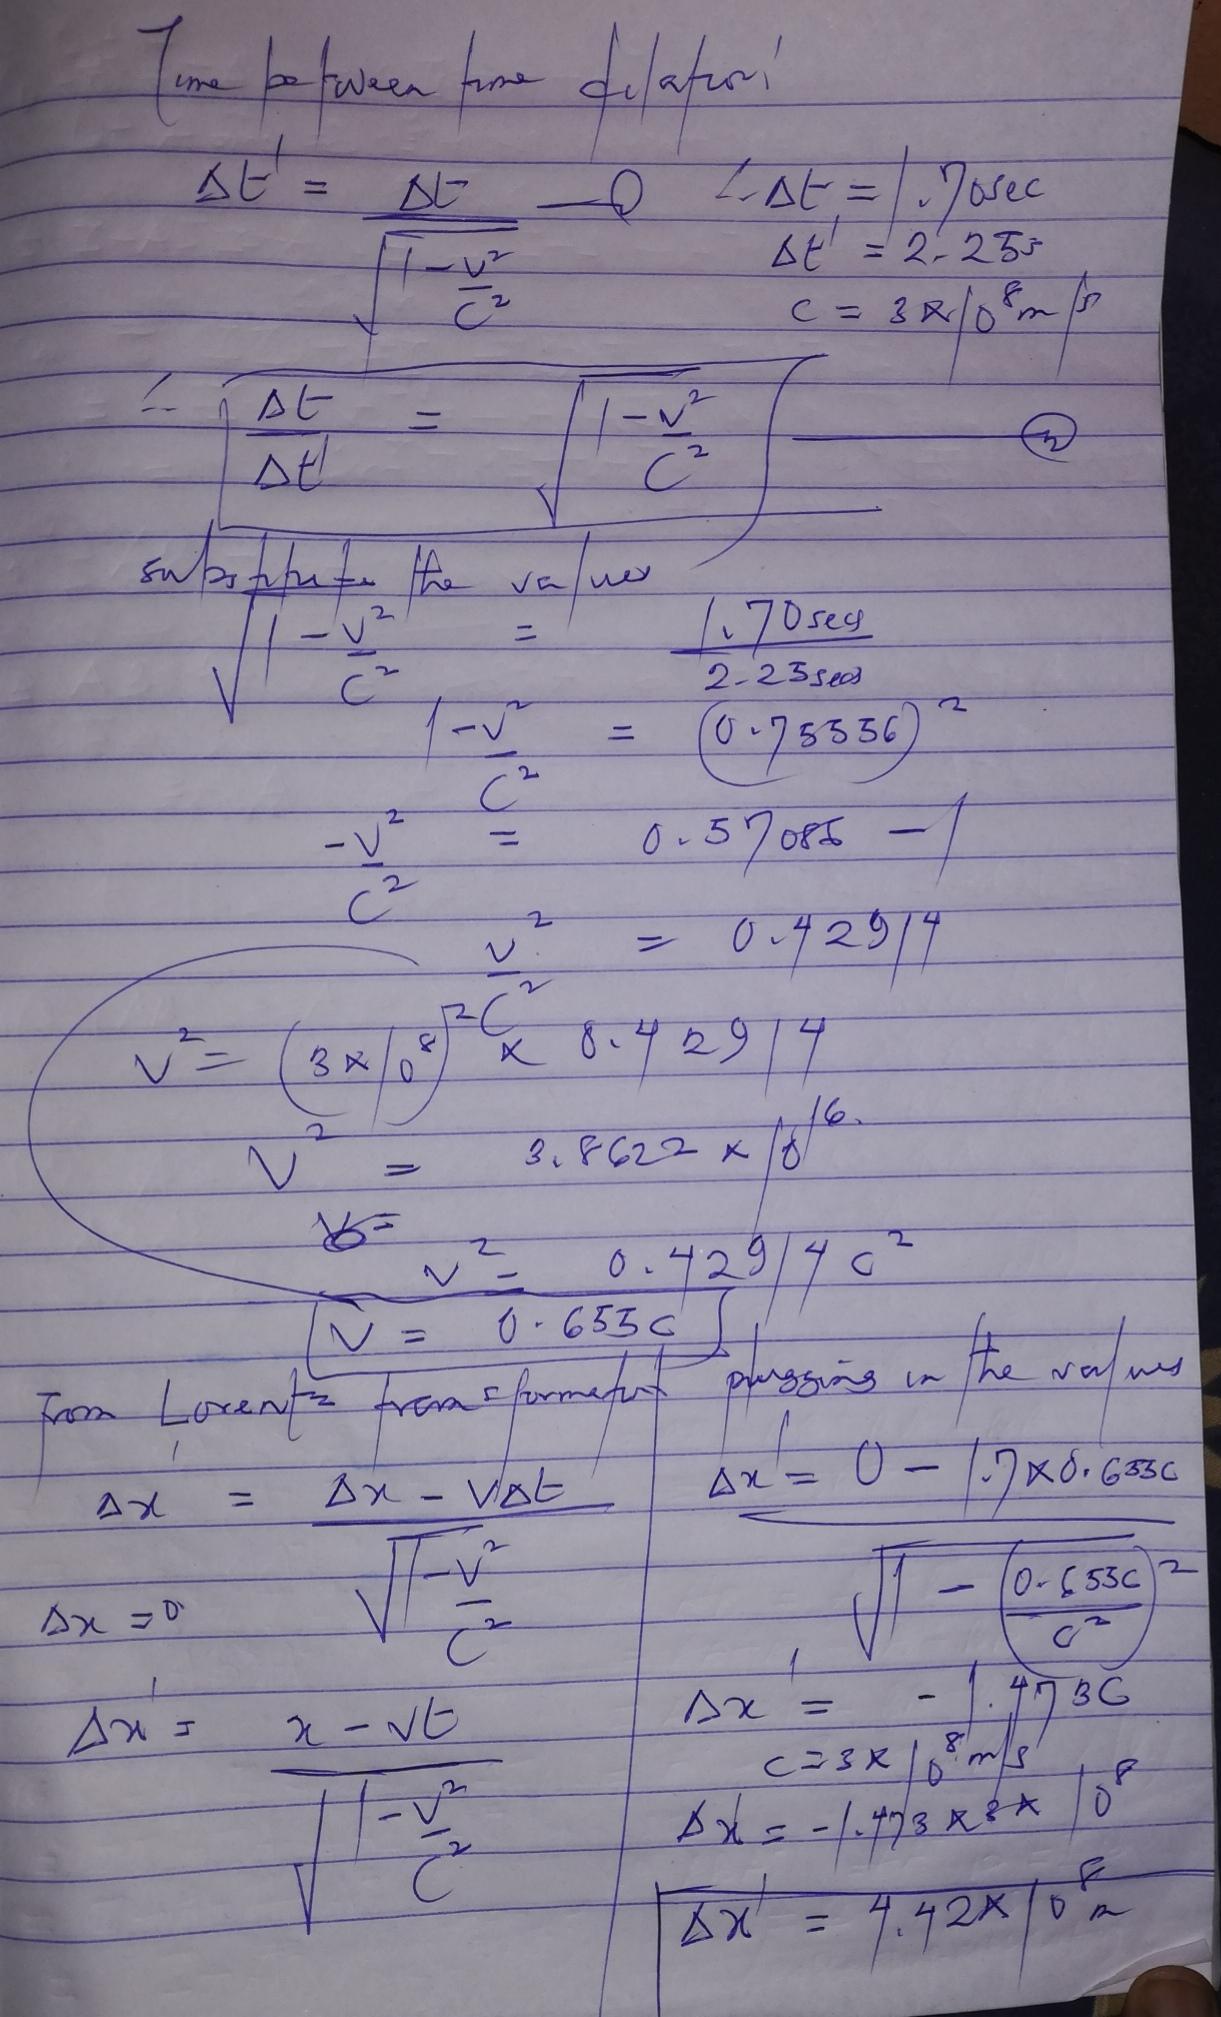 Time between time dilation:
Δt' = Δt / √(1 - v²/c²) — ① ∴ Δt = 1.70sec
Δt' = 2.25s
c = 3 x 10⁸ m/s
∴ Δt / Δt' = √(1 - v²/c²) — ②
substitute the values
√(1 - v²/c²) = 1.70secs / 2.25secs
1 - v²/c² = (0.75556)²
-v²/c² = 0.57086 - 1
v²/c² = 0.42914
v² = (3 x 10⁸)² x 0.42914
v² = 3.8622 x 10¹⁶.
v² = 0.42914 c²
v = 0.655c
From Lorentz transformation
Δx' = Δx - vΔt / √(1 - v²/c²)
Δx = 0
Δx' = x - vt / √(1 - v²/c²)
plugging in the values
Δx' = 0 - 1.7 x 0.655c / √(1 - (0.655c/c²)²)
Δx' = -1.473c
c = 3 x 10⁸ m/s
Δx' = -1.473 x 3 x 10⁸
Δx' = 4.42 x 10⁸ m